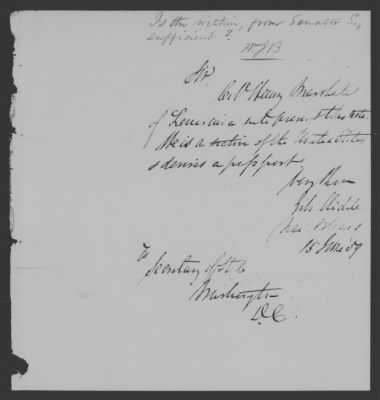 Is the within, from Senator S.,
sufficient?
W.J.B
Sir
Col. Henry Marshall
of Louisiana will present this note.
He is a native of the United States
& desires a passport
Very Resp
John Slidell
New Orleans
15 June '59
To
Secretary of State
Washington
D.C.